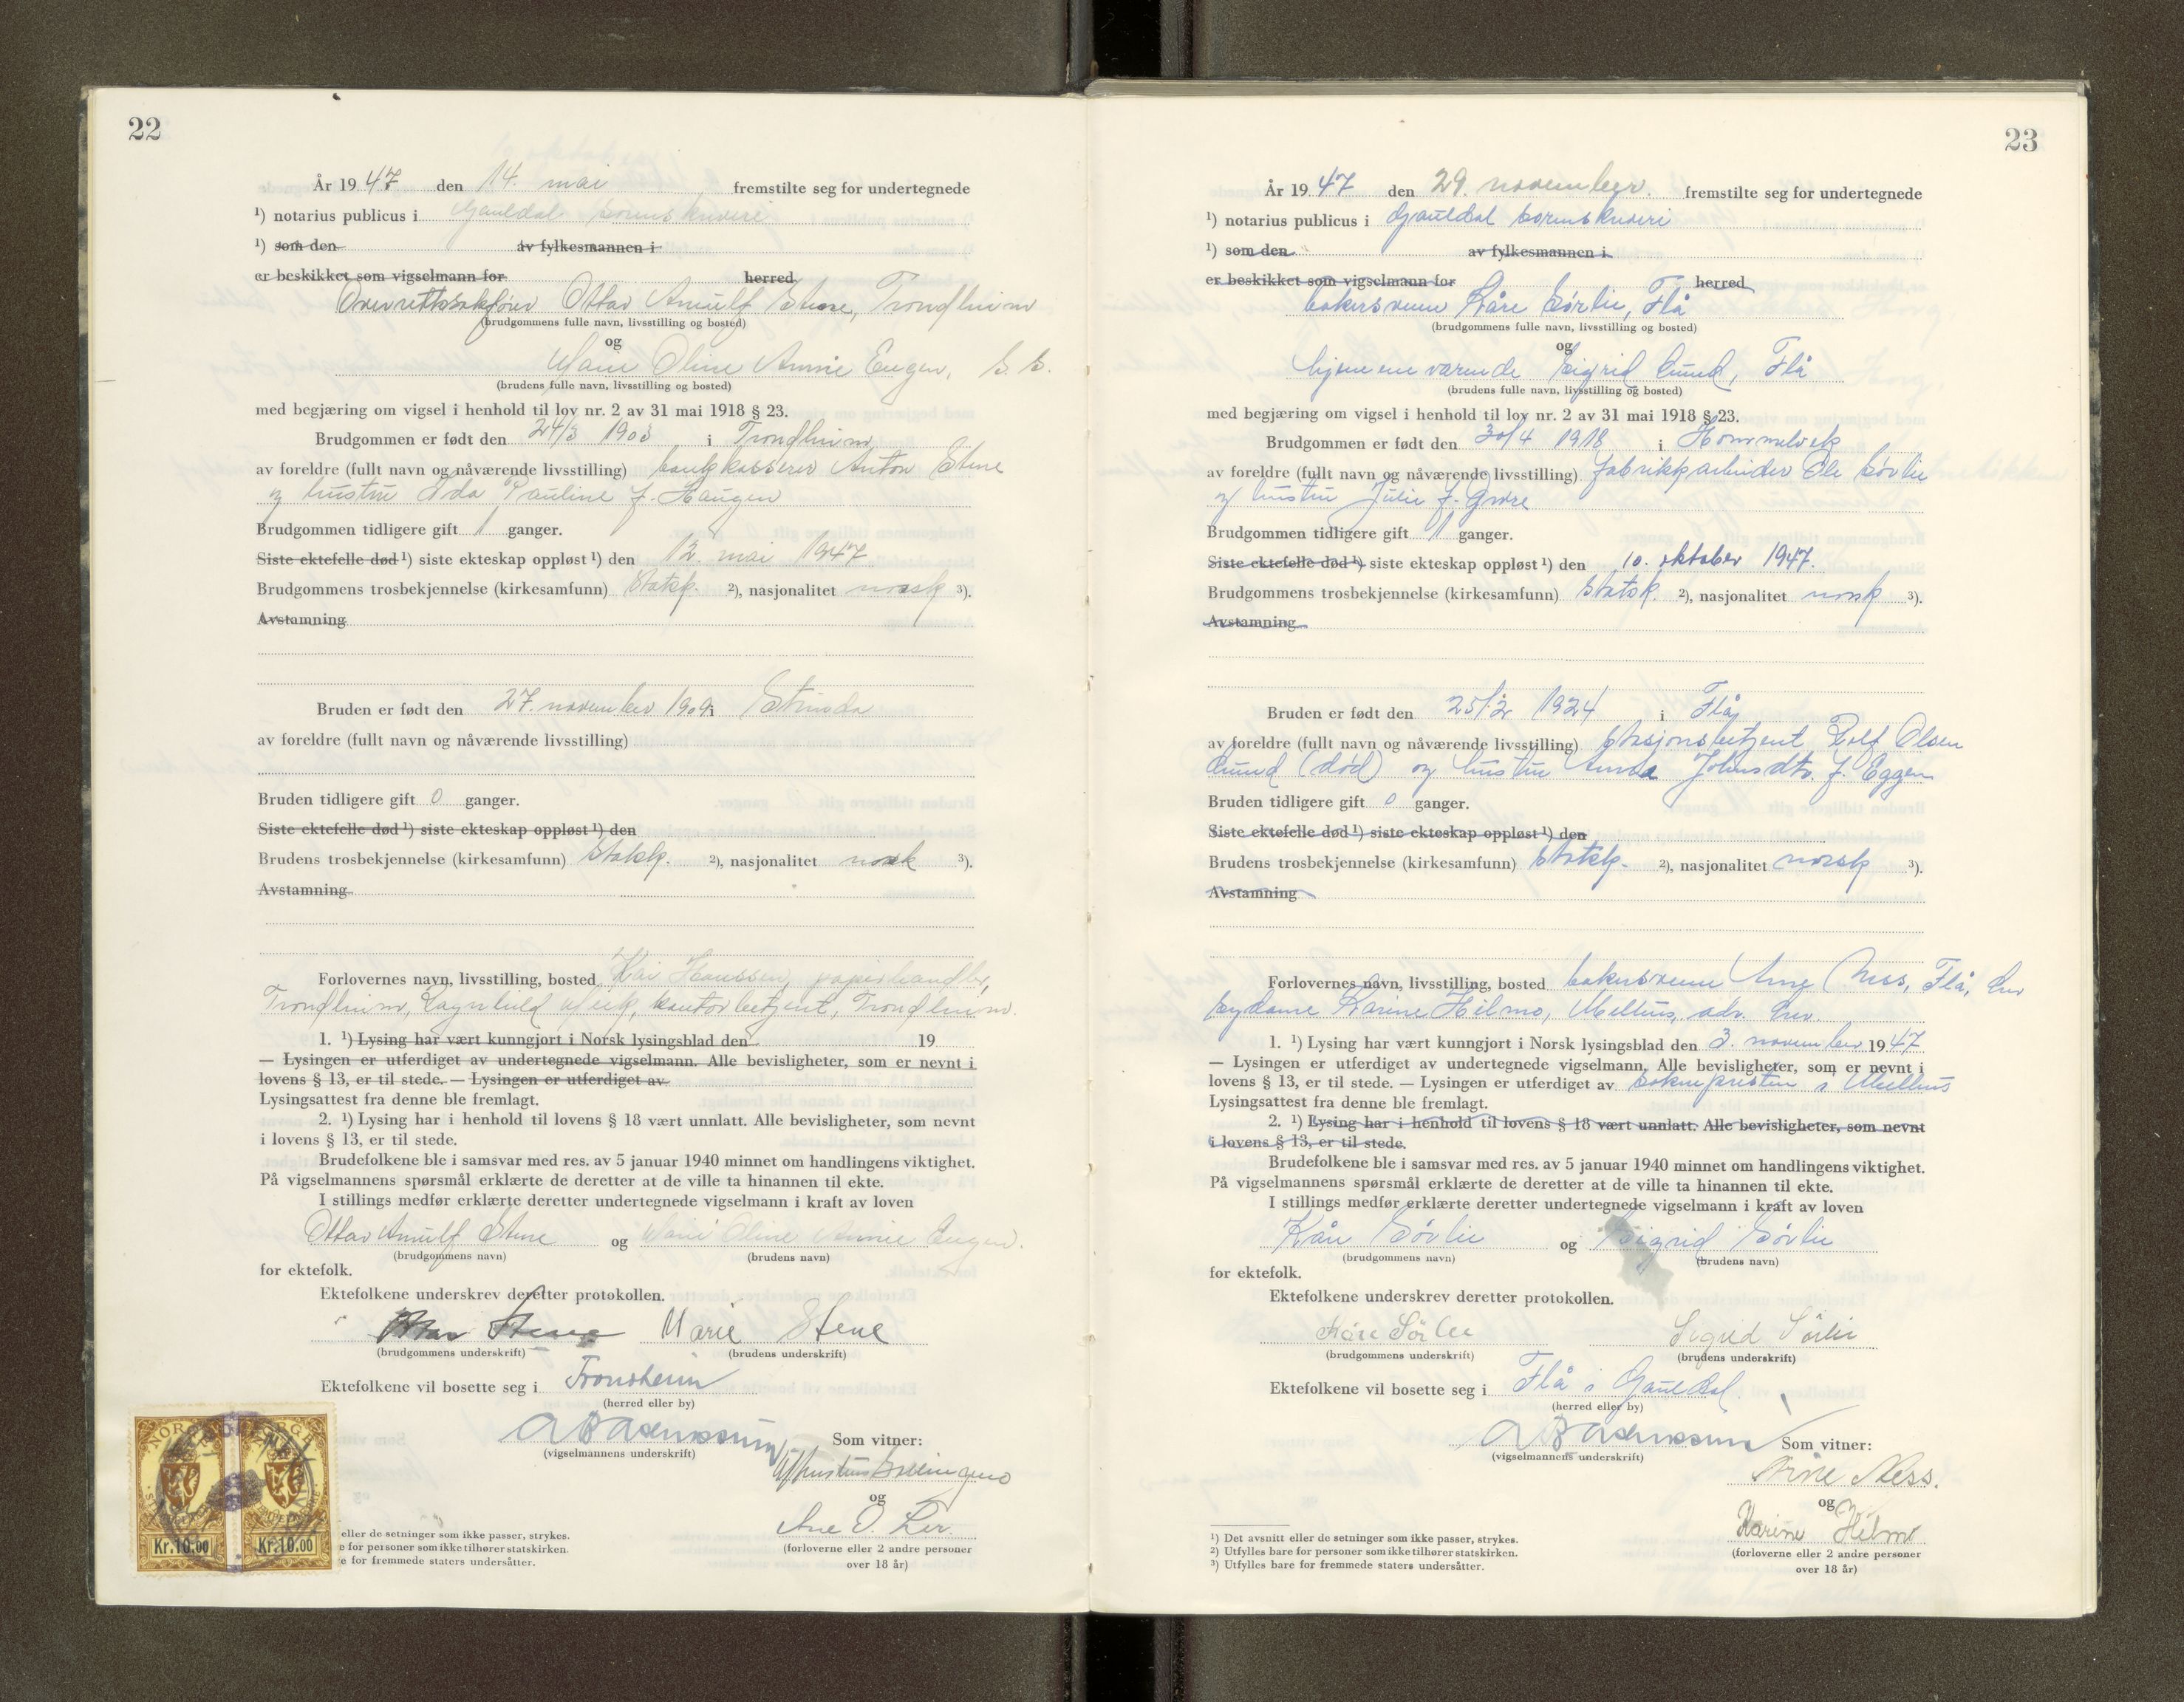 22
År 1947 den 14. mai fremstilte seg for undertegnede
¹) notarius publicus i Gauldal sorenskriveri
¹) som den av fylkesmannen i
er beskikket som vigselmann for herred
Overrettssakfører Ottar Arnulf Stene, Trondheim
(brudgommens fulle navn, livsstilling og bosted)
og
Marie Oline Annie Eugen, s. s.
(brudens fulle navn, livsstilling og bosted)
med begjæring om vigsel i henhold til lov nr. 2 av 31 mai 1918 § 23.
Brudgommen er født den 24/3 1903 i Trondheim
av foreldre (fullt navn og nåværende livsstilling) bankkasserer Anton Stene
og hustru Ida Pauline f. Haugen
Brudgommen tidligere gift 1 ganger.
Siste ektefelle død ¹) siste ekteskap oppløst ¹) den 12. mai 1947
Brudgommens trosbekjennelse (kirkesamfunn) Statsk. ²), nasjonalitet norsk ³).
Avstamning
Bruden er født den 27. november 1909 i Strinda
av foreldre (fullt navn og nåværende livsstilling)
Bruden tidligere gift 0 ganger.
Siste ektefelle død ¹) siste ekteskap oppløst ¹) den
Brudens trosbekjennelse (kirkesamfunn) Statsk. ²), nasjonalitet norsk ³).
Avstamning
Forlovernes navn, livsstilling, bosted Kai Hanssen, papirhandler,
Trondheim, Ragnhild kontorbetjent, Trondheim.
1. ¹) Lysing har vært kunngjort i Norsk lysingsblad den 19
— Lysingen er utferdiget av undertegnede vigselmann. Alle bevisligheter, som er nevnt i
lovens § 13, er til stede. — Lysingen er utferdiget av
Lysingsattest fra denne ble fremlagt.
2. ¹) Lysing har i henhold til lovens § 18 vært unnlatt. Alle bevisligheter, som nevnt
i lovens § 13, er til stede.
Brudefolkene ble i samsvar med res. av 5 januar 1940 minnet om handlingens viktighet.
På vigselmannens spørsmål erklærte de deretter at de ville ta hinannen til ekte.
I stillings medfør erklærte deretter undertegnede vigselmann i kraft av loven
Ottar Arnulf Stene og Marie Oline Annie Eugen.
(brudgommens navn) (brudens navn)
for ektefolk.
Ektefolkene underskrev deretter protokollen.
Ottar Stene Marie Stene
(brudgommens underskrift) (brudens underskrift)
Ektefolkene vil bosette seg i Trondheim
(herred eller by)
Som vitner:
(vigselmannens underskrift)
og
Ane O. Ler
(forloverne eller 2 andre personer
over 18 år)
NORGE NORGE
Kr. 10.00 Kr. 10.00
eller de setninger som ikke passer, strykes.
e for personer som ikke tilhører statskirken.
e for fremmede staters undersåtter.
23
År 1947 den 29. november. fremstilte seg for undertegnede
¹) notarius publicus i Gauldal sorenskriveri
¹) som den av fylkesmannen i
er beskikket som vigselmann for herred
bakersvenn Kåre Sørlie, Flå
(brudgommens fulle navn, livsstilling og bosted)
og
hjemmeværende Sigrid Lund, Flå
(brudens fulle navn, livsstilling og bosted)
med begjæring om vigsel i henhold til lov nr. 2 av 31 mai 1918 § 23.
Brudgommen er født den 30/4 1918 i Hommelvik
av foreldre (fullt navn og nåværende livsstilling) fabrikkarbeider Ole Sørlie
og hustru Julie f.
Brudgommen tidligere gift 1 ganger.
Siste ektefelle død ¹) siste ekteskap oppløst ¹) den 10. oktober 1947.
Brudgommens trosbekjennelse (kirkesamfunn) Statsk. ²), nasjonalitet norsk ³).
Avstamning
Bruden er født den 25/2 1924 i Flå
av foreldre (fullt navn og nåværende livsstilling) stasjonsbetjent Rolf Olsen
Lund (død) og hustru Anna Johnsdtr. f. Eggen
Bruden tidligere gift 0 ganger.
Siste ektefelle død ¹) siste ekteskap oppløst ¹) den
Brudens trosbekjennelse (kirkesamfunn) Statsk. ²), nasjonalitet norsk ³).
Avstamning
Forlovernes navn, livsstilling, bosted bakersvenn Arne Ness, Flå,
sydame Karine Hilmo, Melhus,
1. ¹) Lysing har vært kunngjort i Norsk lysingsblad den 3. november 1947
— Lysingen er utferdiget av undertegnede vigselmann. Alle bevisligheter, som er nevnt i
lovens § 13, er til stede. — Lysingen er utferdiget av sokneprésten i Melhus
Lysingsattest fra denne ble fremlagt.
2. ¹) Lysing har i henhold til lovens § 18 vært unnlatt. Alle bevisligheter, som nevnt
i lovens § 13, er til stede.
Brudefolkene ble i samsvar med res. av 5 januar 1940 minnet om handlingens viktighet.
På vigselmannens spørsmål erklærte de deretter at de ville ta hinannen til ekte.
I stillings medfør erklærte deretter undertegnede vigselmann i kraft av loven
Kåre Sørlie og Sigrid Sørlie
(brudgommens navn) (brudens navn)
for ektefolk.
Ektefolkene underskrev deretter protokollen.
Kåre Sørlie Sigrid Sørlie
(brudgommens underskrift) (brudens underskrift)
Ektefolkene vil bosette seg i Flå i Gauldal.
(herred eller by)
Som vitner:
(vigselmannens underskrift)
Arne Ness.
og
Karine Hilmo
(forloverne eller 2 andre personer
over 18 år)
¹) Det avsnitt eller de setninger som ikke passer, strykes.
²) Utfylles bare for personer som ikke tilhører statskirken.
³) Utfylles bare for fremmede staters undersåtter.